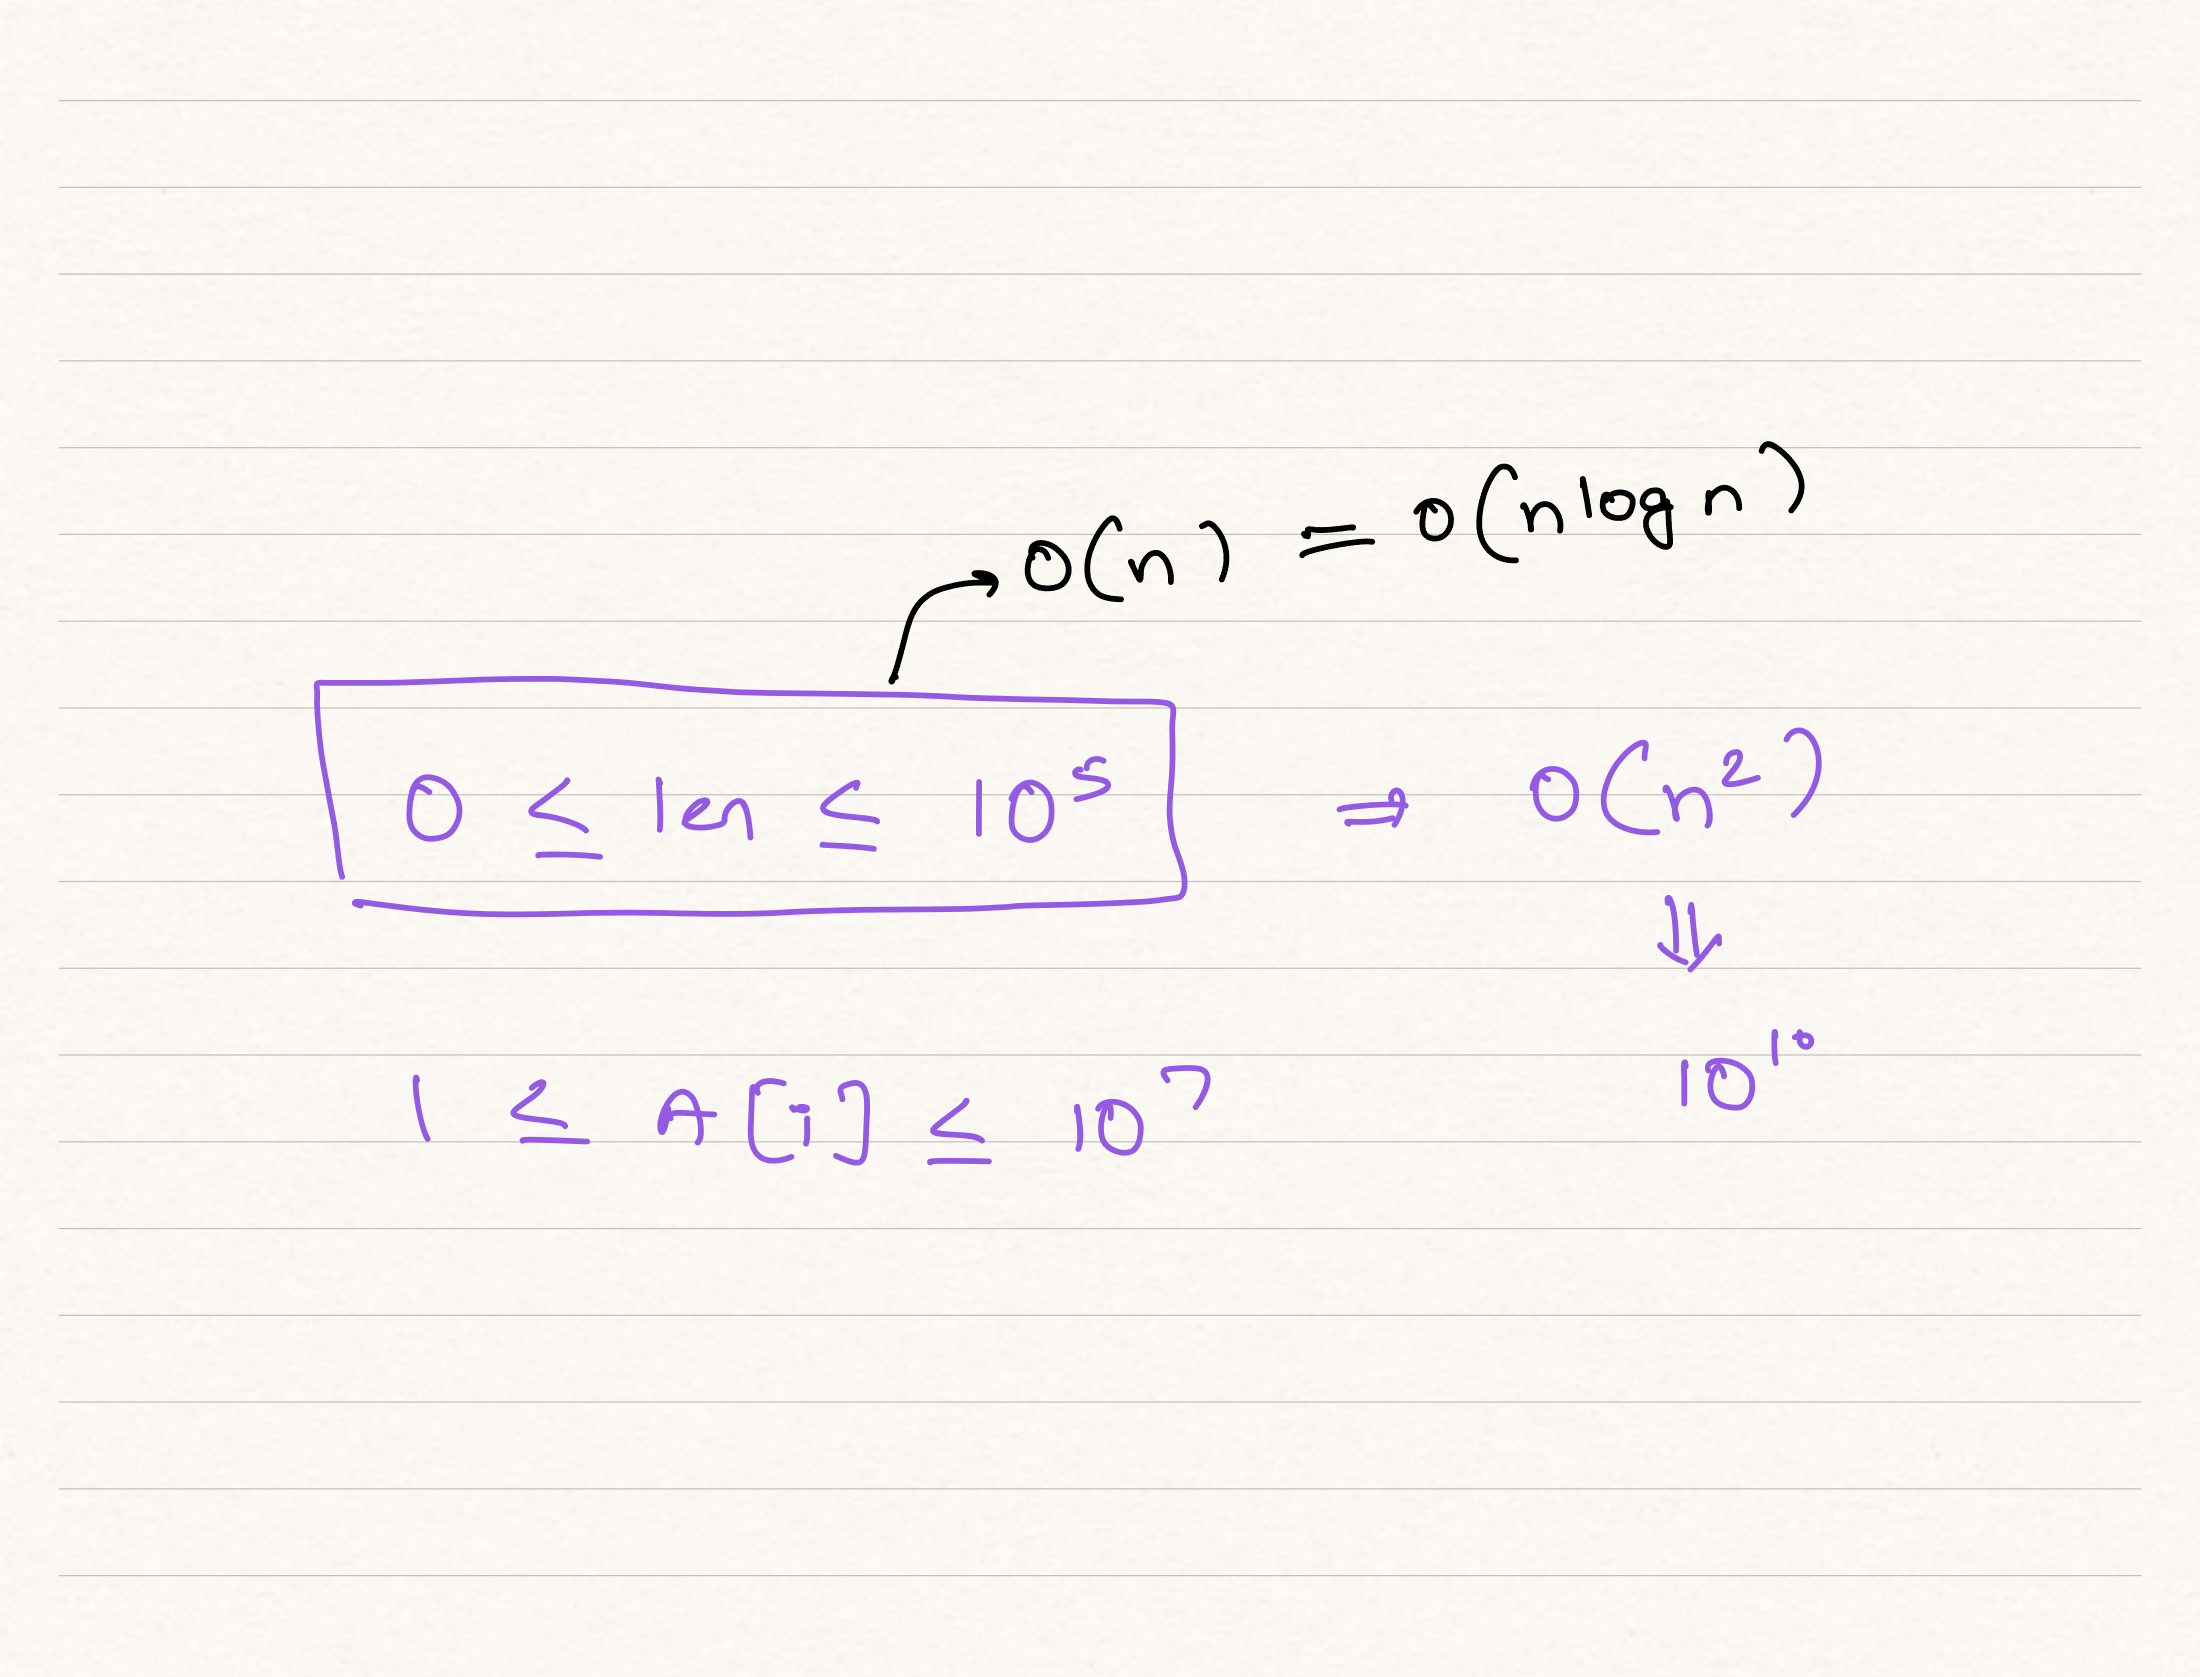 → O(n) = O(n log n)
0 ≤ len ≤ 10⁵ ⇒ O(n²)
⇓
10¹⁰
1 ≤ A[i] ≤ 10⁷